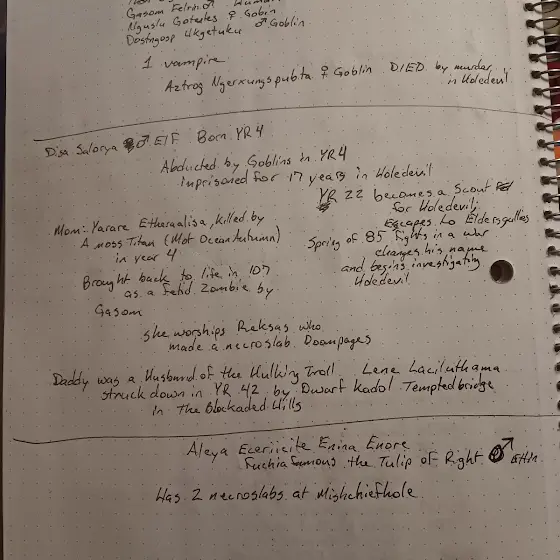 Gasom Felrin ♂ Human
Nguslu Gotestes ♀ Goblin
Dostngosp Ukgetuku ♂ Goblin
1 vampire
Aztrog Ngerxungspubta ♀ Goblin DIED by murder
in Holedevil
Disa Salorya ♂ Elf Born YR 4
Abducted by Goblins in YR 4
inprisoned for 17 years in Holedevil
YR 22 becomes a Scout
for Holedevil
Escapes to Eldersgullies
Spring of 85 fights in a war
changes his name
and begins investigating
Holedevil
Mom: Yarare Etheraalisa, killed by
A moss Titan (Mot OceanAutumn)
in year 4
Brought back to life in 107
as a fetid Zombie by
Gasom
she worships Reksas who
made a necroslab Doompages
Daddy was a Husband of the Hulking Troll Lene Laciluthama
struck down in YR 42 by Dwarf Kadol Temptedbridge
in The Blockaded Hills
Aleya Eceriicite Enina Enore
Fuchiafamous the Tulip of Right ♂
Has 2 necroslabs at Mishchiefhole